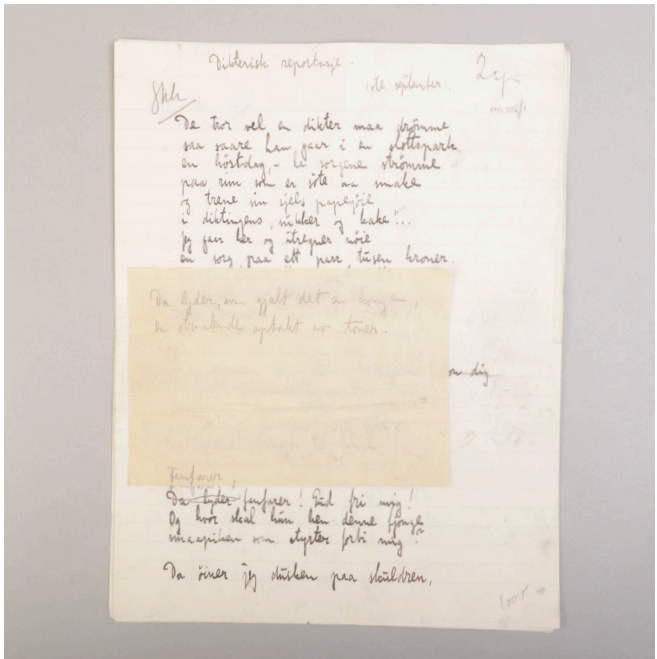 Dikterisk reportasje.
1ste september.
2 sp
8kk
De tror vel en dikter maa drømme
saa saare han gaar i en slottspark
en höstdag, – la sorgene strømme
paa rim som er söte aa smake
og trene sin sjels papegöie
i diktingens „sukker og kake"...
Jeg gaar her og utregner nöie
en sorg paa ett parr tusen kroner.
Da lyder, som gjalt det en konge,
en straalende optakt av toner.
dig
Fanfarer,
Da lyder fanfarer! Gud fri mig!
Og hvor skal hun hen denne fjonge
smaapiken som styrter forbi mig?
Da öiner jeg dusken paa skuldren,